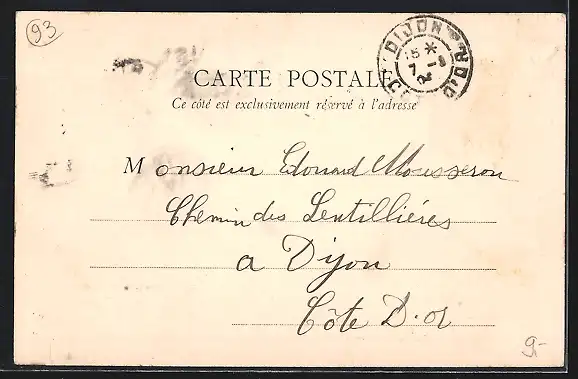 93
DIJON
15 *
7 - 1
CARTE POSTALE
Ce côté est exclusivement réservé à l'adresse
Monsieur Edouard Mousseron
Chemin des Lentillières
a Dijon
Côte D'or
9-